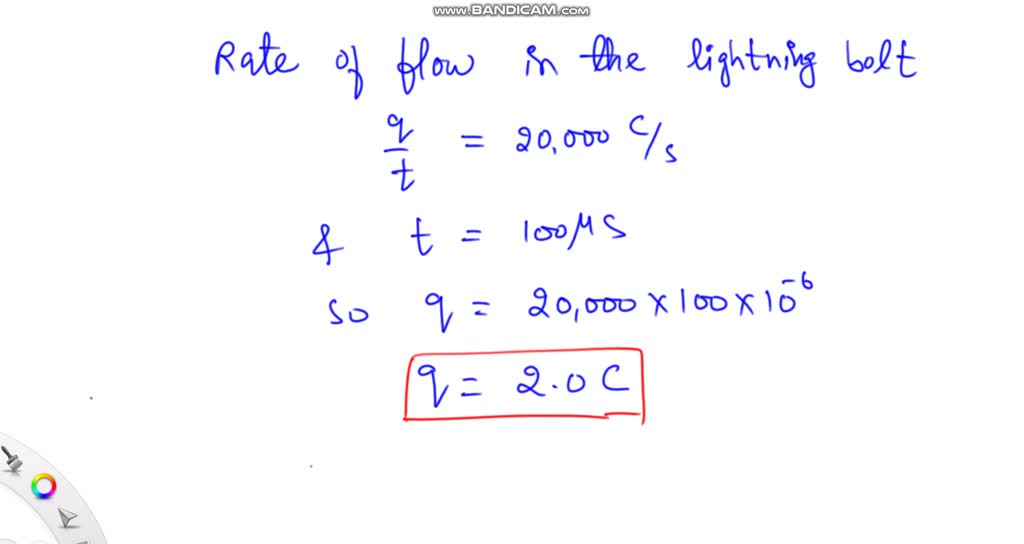 www.BANDICAM.com
Rate of flow in the lightning bolt
q/t = 20,000 C/s
& t = 100μs
so q = 20,000 × 100 × 10⁻⁶
q = 2.0 C